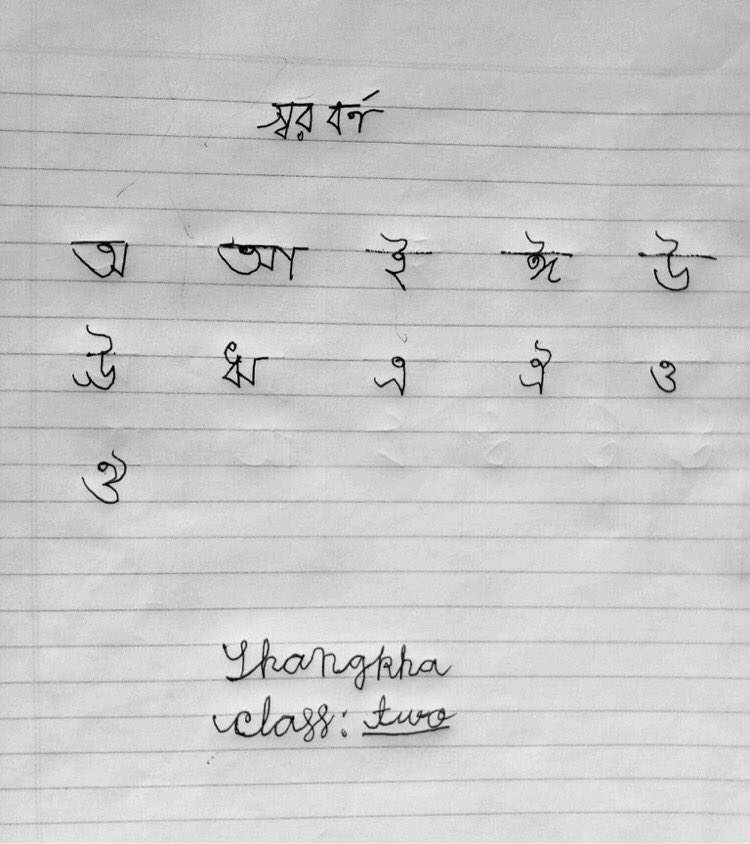 স্বর বর্ণ
অ আ ই ঈ উ
ঊ ঋ এ ঐ ও
ঔ
Thangkha
class: two